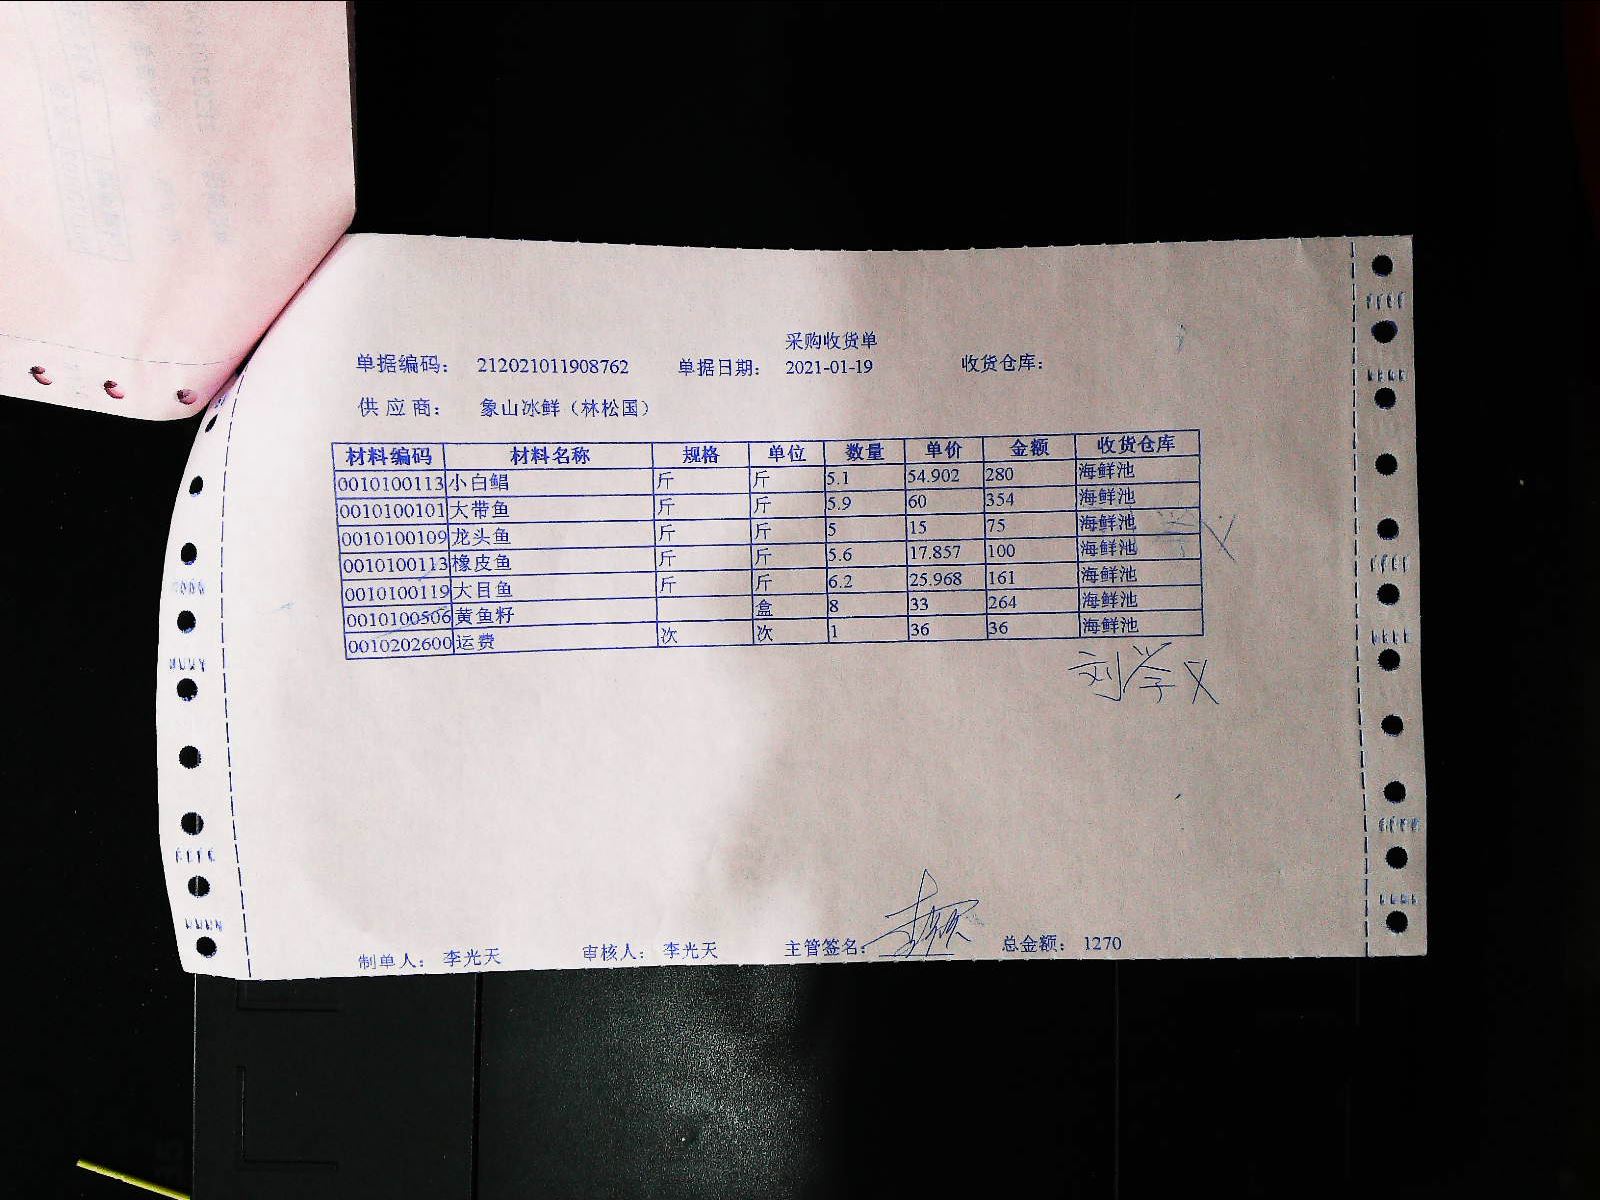 采购收货单
单据编码： 212021011908762 单据日期： 2021-01-19 收货仓库：
供 应 商： 象山冰鲜（林松国）
材料编码 材料名称 规格 单位 数量 单价 金额 收货仓库
0010100113 小白鲳 斤 斤 5.1 54.902 280 海鲜池
0010100101 大带鱼 斤 斤 5.9 60 354 海鲜池
0010100109 龙头鱼 斤 斤 5 15 75 海鲜池
0010100113 橡皮鱼 斤 斤 5.6 17.857 100 海鲜池
0010100119 大目鱼 斤 斤 6.2 25.968 161 海鲜池
0010100506 黄鱼籽 盒 8 33 264 海鲜池
0010202600 运费 次 次 1 36 36 海鲜池
刘学义
制单人： 李光天 审核人： 李光天 主管签名： 总金额： 1270